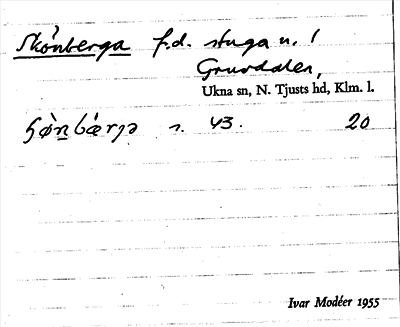 Skönberga f.d. stuga u. /
Grundalen,
Ukna sn, N. Tjusts hd, Klm. l.
ʂø̀n̠bǽrja n. 43. 20
Ivar Modéer 1955